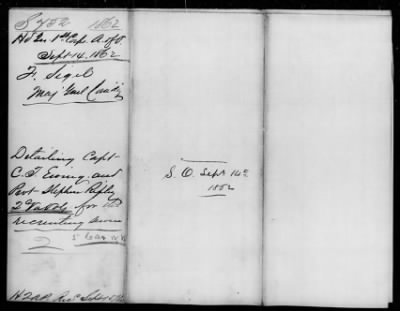 S 752 1862
Hd Qrs 1st Corps A. of V.
Sept 14. 1862
F. Sigel
Maj Genl Comdg
Detailing Capt
C. T. Ewing and
Priv Stephen Ripley
2 Va Vols for the
recruiting serv
2
S. O. Sept 14th
1862